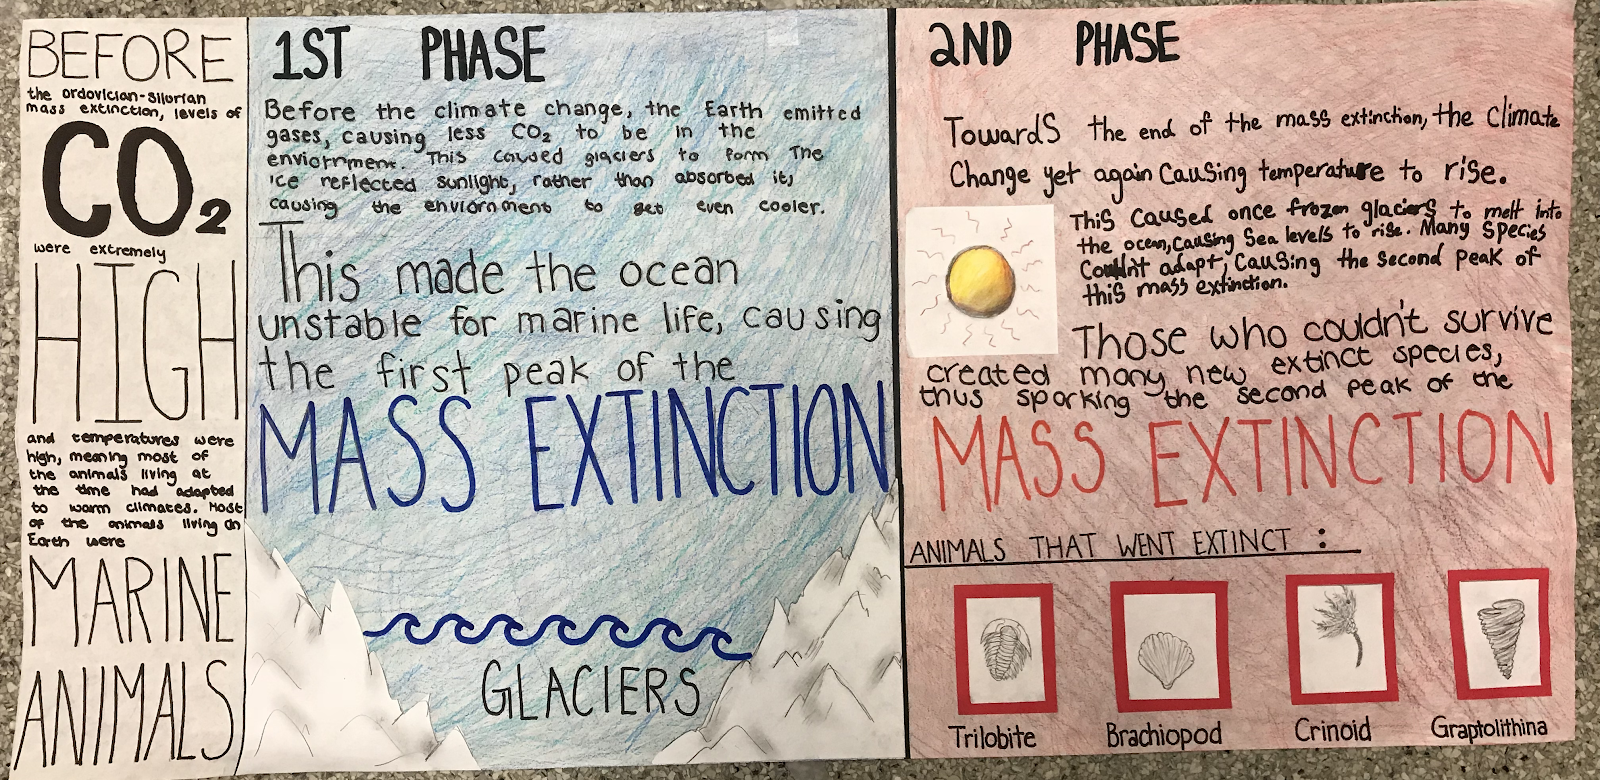 BEFORE
the ordovician-silurian
mass extinction, levels of
CO2
were extremely
HIGH
and temperatures were
high, meaning most of
the animals living at
the time had adapted
to warm climates. Most
of the animals living on
Earth were
MARINE
ANIMALS
1ST PHASE
Before the climate change, the Earth emitted
gases, causing less CO2 to be in the
enviornment. This caused glaciers to form The
ice reflected sunlight, rather than absorbed it,
causing the enviornment to get even cooler.
This made the ocean
unstable for marine life, causing
the first peak of the
MASS EXTINCTION
GLACIERS
2ND PHASE
Towards the end of the mass extinction, the climate
Change yet again causing temperature to rise.
This caused once frozen glaciers to melt into
the ocean, causing sea levels to rise. Many species
Couldn't adapt, causing the second peak of
this mass extinction.
Those who couldn't survive
created many new extinct species,
thus sparking the second peak of the
MASS EXTINCTION
ANIMALS THAT WENT EXTINCT :
Trilobite
Brachiopod
Crinoid
Graptolithina